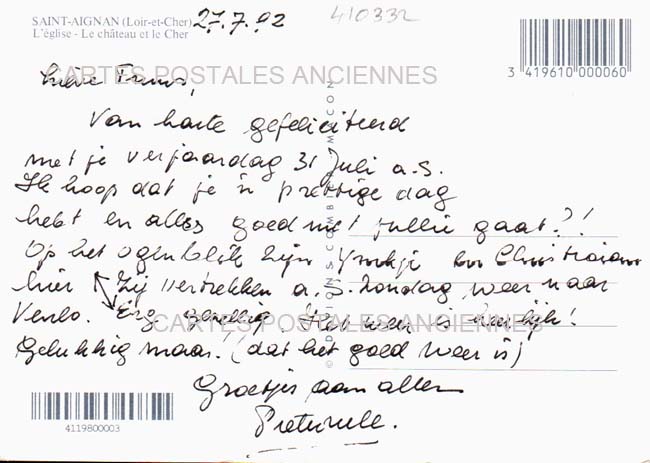 SAINT-AIGNAN (Loir-et-Cher)
L'église - Le château et le Cher
27.7.92
410332
3 419610 000060
CARTES POSTALES ANCIENNES
Lieve Frans,
Van harte gefeliciteerd
met je verjaardag 31 Juli a.s.
Ik hoop dat je 'n prettige dag
hebt en alles goed met jullie gaat?!
Op het ogenblik zijn en Christiaan
hier Zij vertrekken a.s. Zondag weer naar
Venlo. Erg gezellig Het weer is heerlijk!
CARTES POSTALES ANCIENNES
Gelukkig maar! (dat het goed weer is)
Groetjes aan allen
4119800003